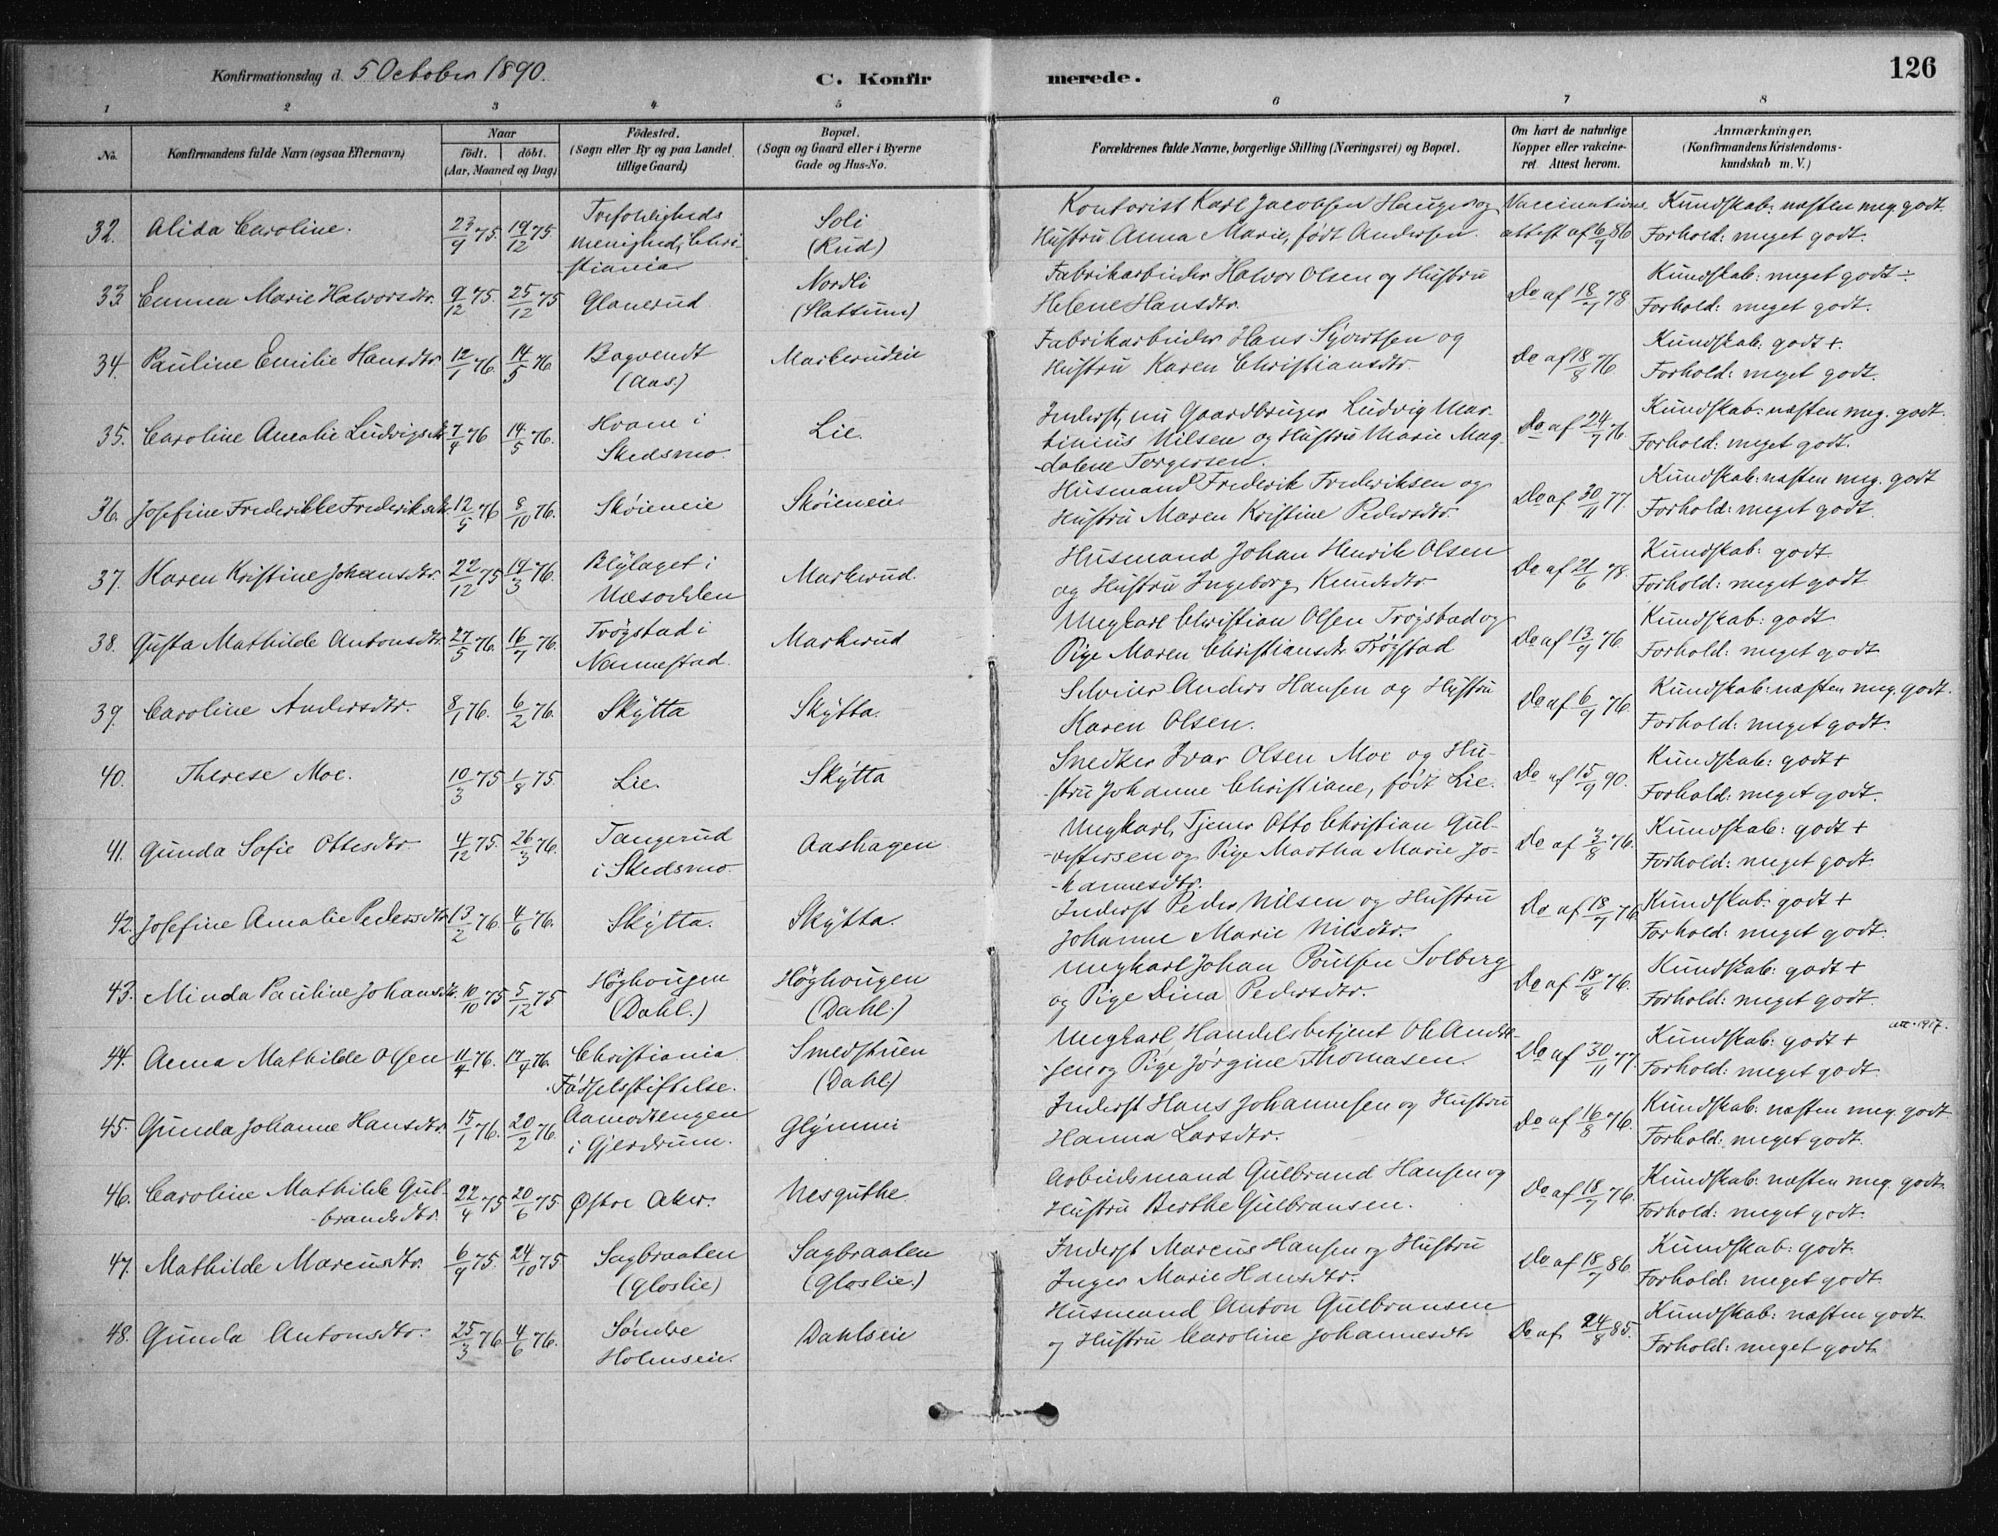 Konfirmationsdag d. 5 October 1890.
C. Konfir merede.
126
1 2 3 4 5 6 7 8
No.
Konfirmandens fulde Navn (ogsaa Efternavn)
Naar
født. døbt.
(Aar, Maaned og Dag)
Fødested.
(Sogn eller By og paa Landet tillige Gaard)
Bopæl.
(Sogn og Gaard eller i Byerne Gade og Hus-No.
Forældrenes fulde Navne, borgerlige Stilling (Næringsvei) og Bopæl.
Om havt de naturlige Kopper eller vaccineret. Attest herom.
Anmærkninger.
(Konfirmandens Kristendomskundskab m. V.)
32. Alida Caroline. 23/9 75. 19/12 75 Trefoldigheds menighed, Christiania Soli (Rud) Kontorist Karl Jacobsen Hauger og Hustru Anna Marie, født Andersen. Vaccinations attest af 6/9 86 Kundskab: næsten meg. godt. Forhold: meget godt.
33 Emma Marie Halvorsdtr. 9/12 75. 25/12 75 Glanerud Nordli (Slattum) Fabrikarbeider Halvor Olsen og Hustru Helene Hansdtr. Do af 18/7 78. Kundskab: meget godt ÷ Forhold: meget godt.
34. Pauline Emilie Hansdtr. 12/1 76. 14/5 76 Bagvendt (Aas.) Markerudeie Fabrikarbeider Hans Sjvertsen og Hustru Karen Christiansdtr. Do af 18/8 76. Kundskab: godt +. Forhold: meget godt.
35. Caroline Amalie Ludvigsdtr. 7/4 76 14/5 76. Hvam i Skedsmo. Lie. Inderst, nu Gaardbruger Ludvig Martinius Nilsen og Hustru Marie Magdalene Torgersen. Do af 24/7 76. Kundskab: næsten meg. godt. Forhold: meget godt.
36. Josefine Frederikke Frederiksdtr. 12/5 76 8/10 76. Skøieneie Skøieneie Husmand Frederik Frederiksen og Hustru Maren Kristine Pedersdtr. Do af 30/11 77. Kundskab: næsten meg. godt Forhold: meget godt.
37. Karen Kristine Johansdtr. 22/12 75 14/3 76. Blylaget i Næsodden Markerud. Husmand Johan Henrik Olsen og Hustru Ingeborg Knudsdtr Do af 21/6 78. Kundskab: godt Forhold: meget godt
38. Gusta Mathilde Antonsdtr. 27/5 76. 16/7 76. Trøgstad i Nannestad. Markerud Ungkarl Christian Olsen Trøgstad og Pige Maren Christiansdtr Trøgstad Do af 13/9 76. Kundskab: godt Forhold: meget godt
39. Caroline Andersdtr. 8/1 76. 6/2 76. Skytta Skytta. Selveier Anders Hansen og Hustru Karen Olsen. Do af 6/9 76. Kundskab: næsten meg. godt. Forhold: meget godt.
40. Therese Moe. 10/3 75 1/8 75. Lie. Skytta Snedker Ivar Olsen Moe og Hustru Johanne Christiane, født Lie. Do af 15/9 90. Kundskab: godt + Forhold: meget godt.
41. Gunda Sofie Ottesdtr. 4/12 75. 26/3 76. Tangerud i Skedsmo. Aashagen Ungkarl, Tjener Otto Christian Gulliksen og Pige Martha Marie Johannesdtr. Do af 3/8 76. Kundskab: godt + Forhold: meget godt
42. Josefine Amalie Pedersdtr. 13/2 76. 4/6 76. Skytta. Skytta. Inderst Peder Nilsen og Hustru Johanne Marie Nilsdtr. Do af 18/7 76 Kundskab: godt + Forhold: meget godt.
43. Minda Pauline Johansdtr. 10/10 75 5/12 75 Høghougen (Dahl.) Høghougen (Dahl.) Ungkarl Johan Poulsen Solberg og Pige Dina Pedersdtr. Do af 18/8 76. Kundskab: godt + Forhold: meget godt.
44. Anna Mathilde Olsen 11/4 76. 17/4 76. Christiania Fødselsstiftelse. Smedstuen (Dahl) Ungkarl Handelsbetjent Ole Andersen og Pige Jørgine Thomasen. Do af 30/11 77. Kundskab: godt + Forhold: meget godt att. 1917.
45. Gunda Johanne Hansdtr. 15/1 76. 20/2 76. Aamodtengen i Gjerdrum. Glymmi Inderst Hans Johannesen og Hustru Hanna Larsdtr. Do af 16/8 76. Kundskab: næsten meg. godt Forhold: meget godt.
46. Caroline Mathilde Gulbrandsdtr. 22/4 75 20/6 75 Østre Aker. Nesguthe. Arbeidsmand Gulbrand Hansen og Hustru Berthe Gulbransen. Do af 18/7 76. Kundskab: næsten meg. godt. Forhold: meget godt.
47. Mathilde Marcusdtr. 6/9 75. 24/10 75 Sagbraaten (Gloslie) Sagbraaten (Gloslie.) Inderst Marcus Hansen og Hustru Inger Marie Hansdtr. Do af 18/7 86. Kundskab: godt. Forhold: meget godt.
48. Gunda Antonsdtr. 25/3 76. 4/6 76. Søndre Holmseie. Dahlseie Husmand Anton Gulbransen og Hustru Caroline Johannesdtr Do af 24/8 85. Kundskab: næsten godt. Forhold: meget godt